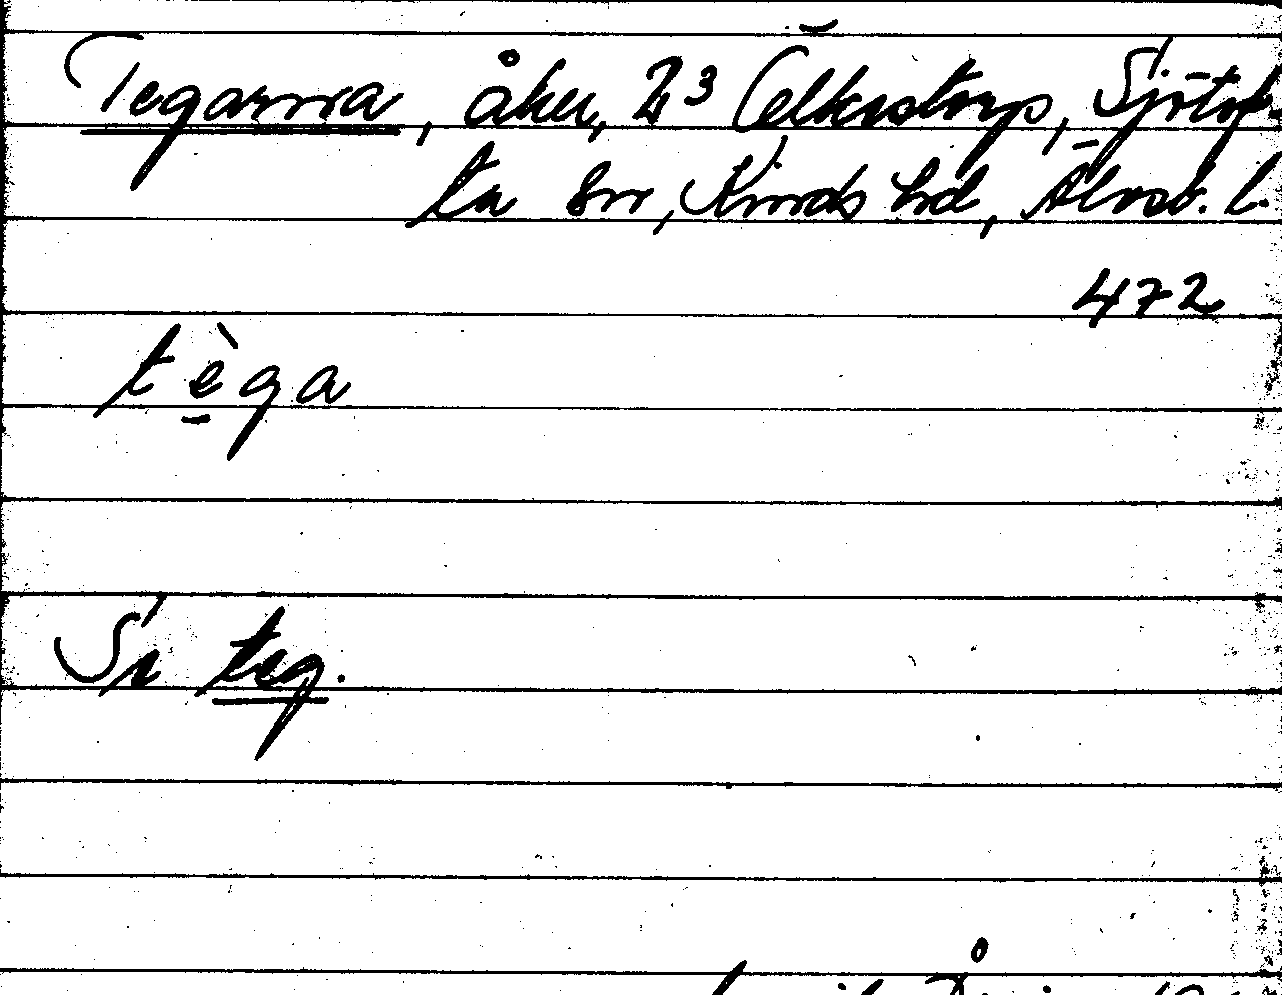 Tegarna, åker, 2³ Ölkestorp, Sjötof-
ta sn, Kinds hd, Älvsb. l.
472
tèga
Se teg.